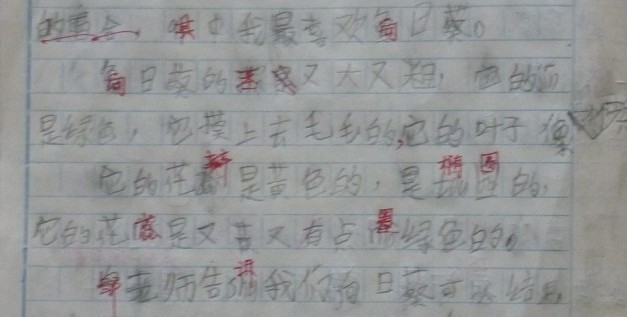 的 其中我最喜欢向日葵。
向日葵的 又大又粗,它的
是绿色,它摸上去毛毛的,它的叶子像
它的花瓣是黄色的,是椭圆的,
它的花 是又黄又有点 绿色的。
老师告 我们向日葵可以结